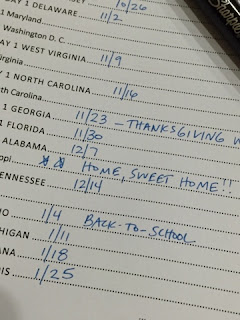 10/26
AY 1 DELAWARE
11/2
1 Maryland
Washington D. C.
AY 1 WEST VIRGINIA 11/9
irginia
1 NORTH CAROLINA 11/16
th Carolina
1 GEORGIA 11/23 - THANKSGIVING W
1 FLORIDA 11/30
ALABAMA 12/7
ppi HOME, SWEET HOME!!
ENNESSEE 12/14
IO 1/4 BACK-TO-SCHOOL
HIGAN 1/11
ANA 1/18
IS 1/25